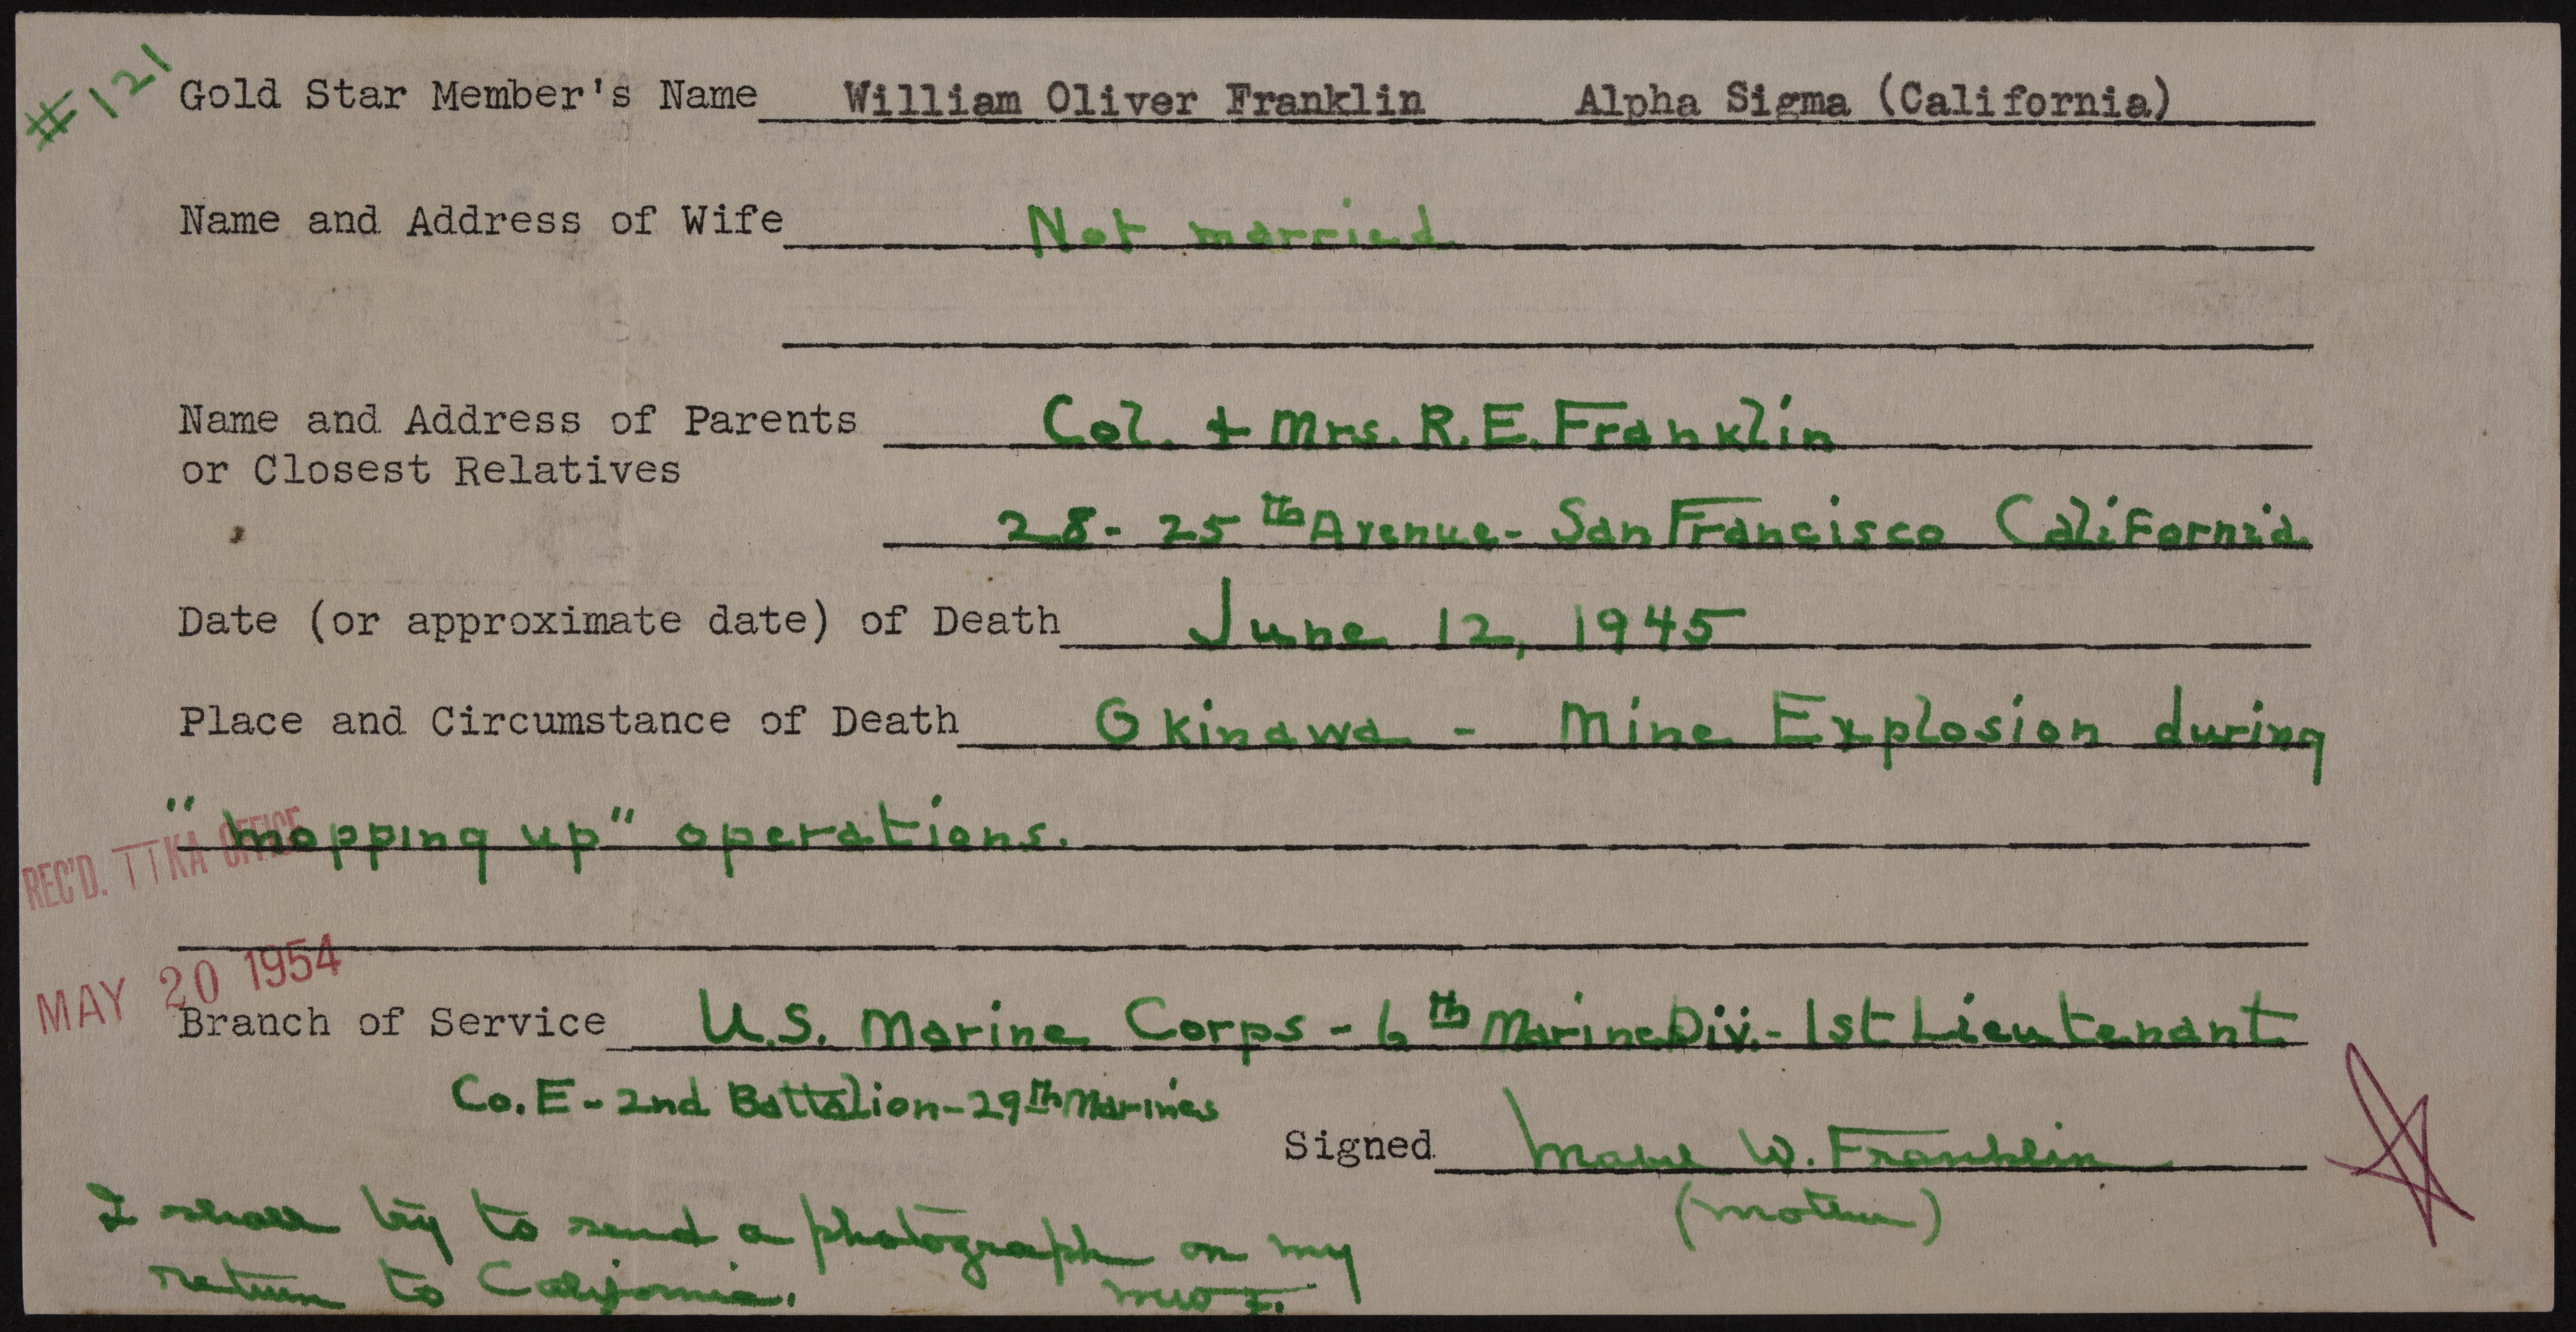 #121
Gold Star Member's Name William Oliver Franklin Alpha Sigma (California)
Name and Address of Wife Not married
Name and Address of Parents Col. + Mrs. R. E. Franklin
or Closest Relatives
28 - 25th Avenue - San Francisco California
Date (or approximate date) of Death June 12, 1945
Place and Circumstance of Death Okinawa - Mine Explosion during
"mopping up" operations.
REC'D. TTKA OFFICE
MAY 20 1954
Branch of Service U.S. Marine Corps - 6th Marine Div. - 1st Lieutenant
Co. E - 2nd Battalion - 29th Marines
Signed Mabel W. Franklin
(mother)
I shall try to send a photograph on my
return to California. MWF.